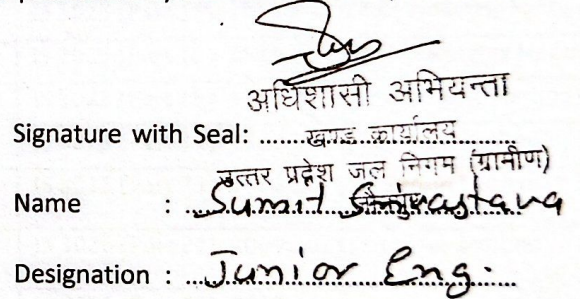 अधिशासी अभियन्ता
Signature with Seal: खण्ड कार्यालय
उत्तर प्रदेश जल निगम (ग्रामीण)
Name : Sumit Srivastava
Designation : Junior Eng.